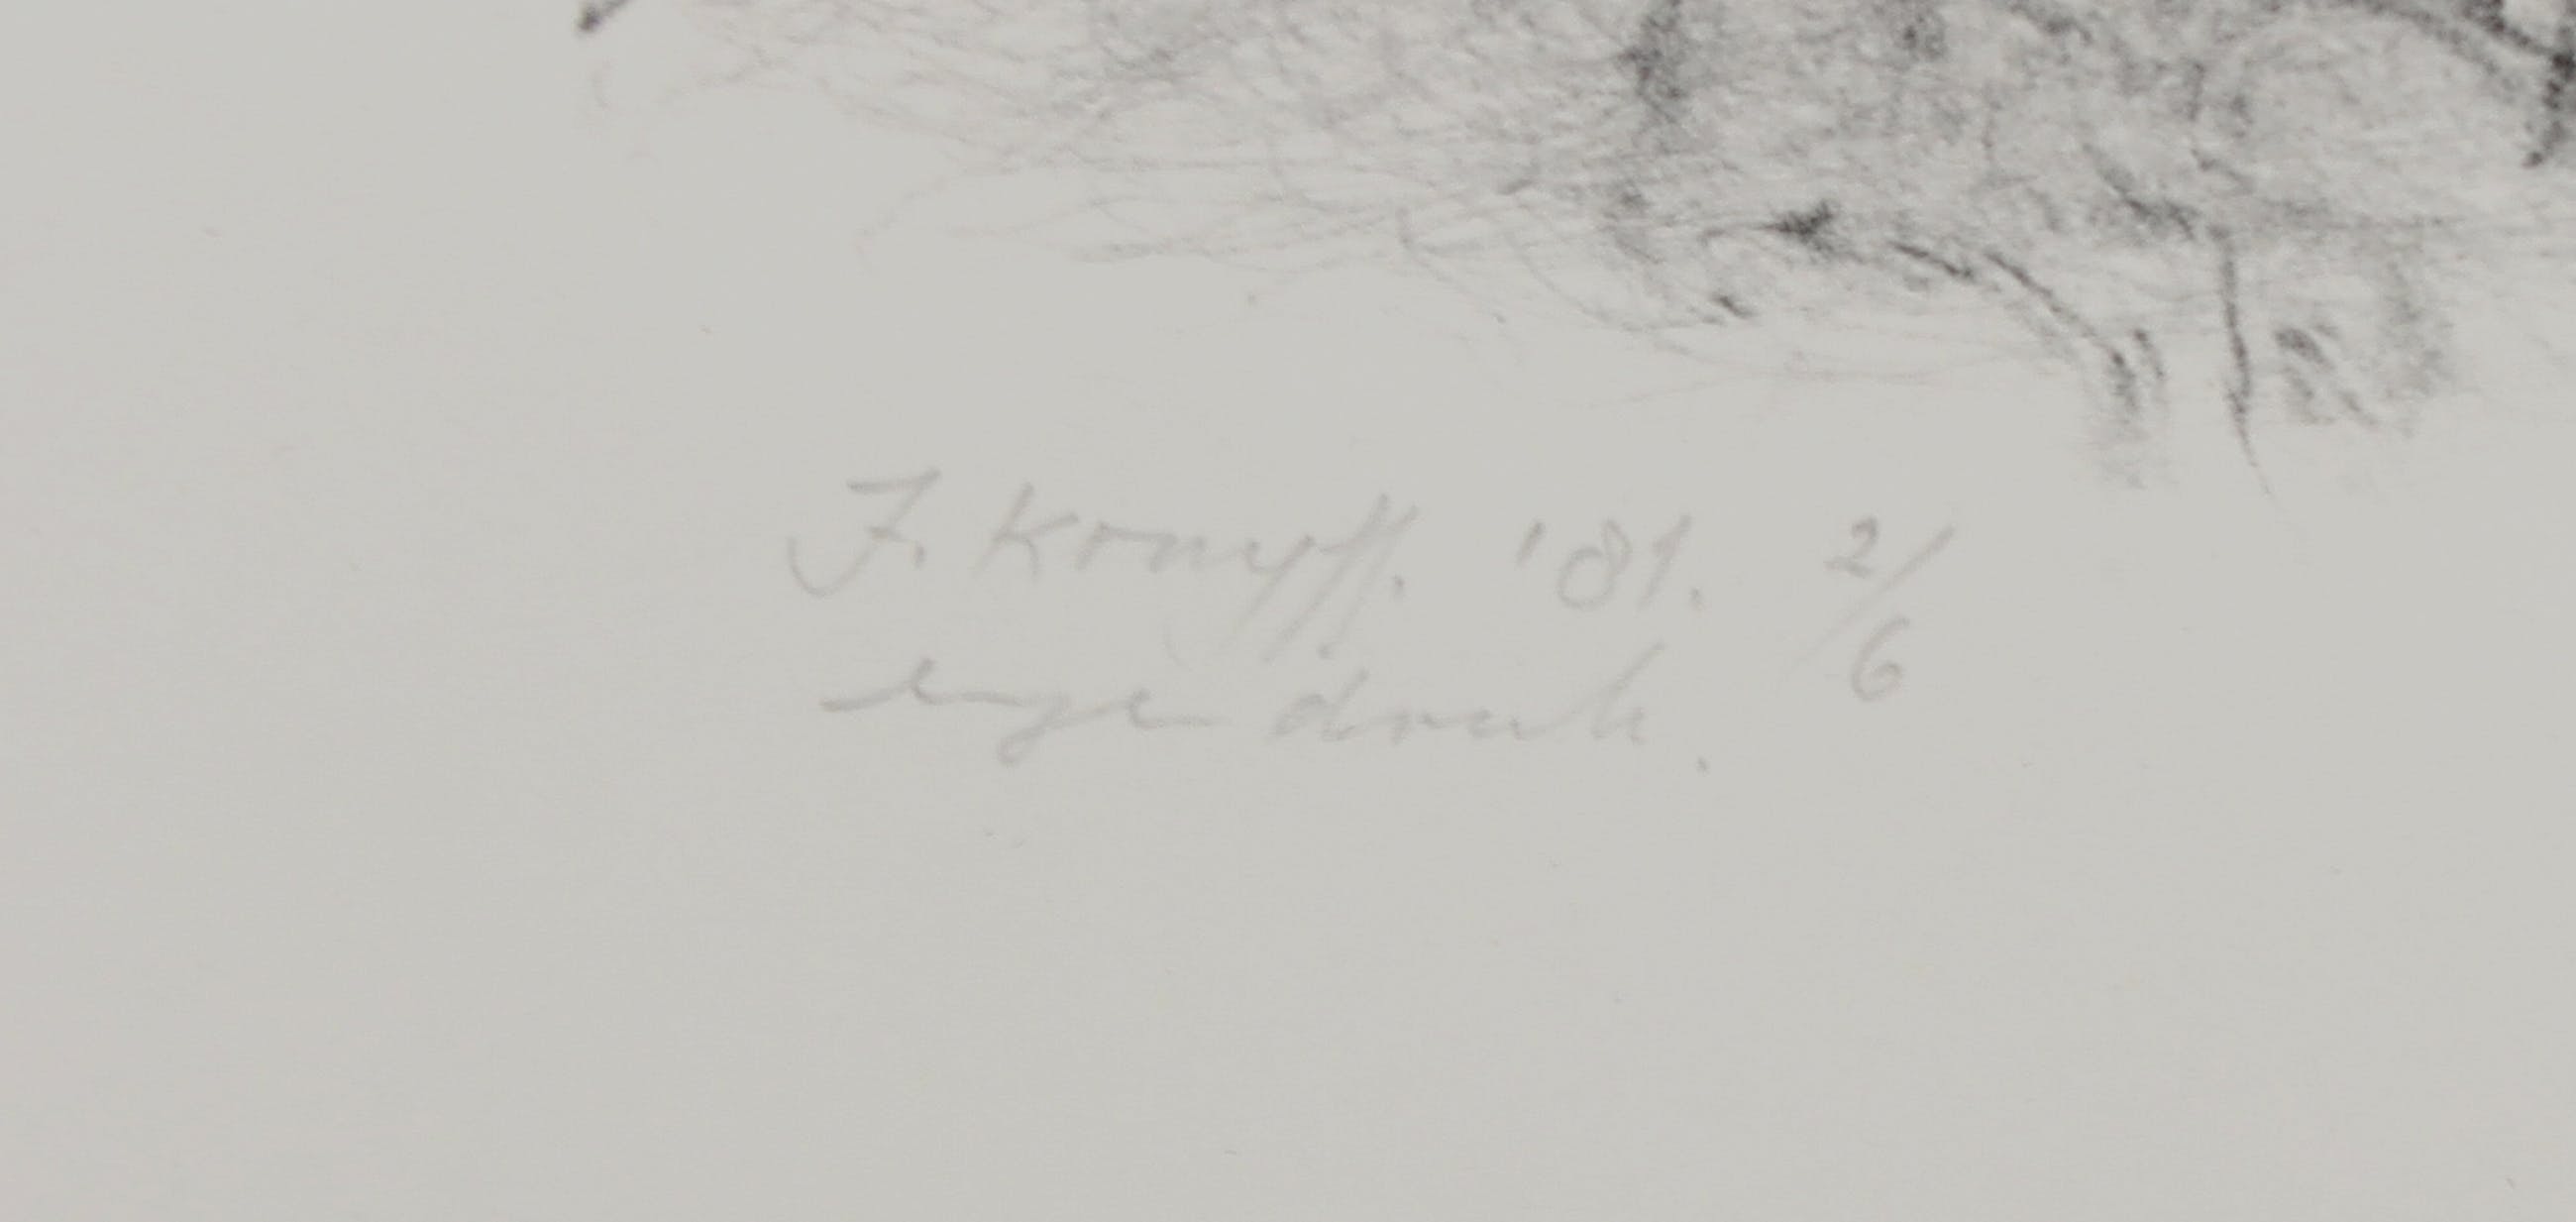 J. Kruyff. '81. 2/6
eige druk.